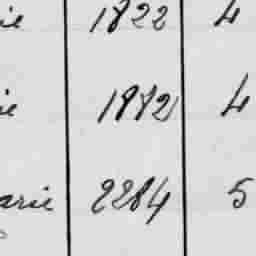 ie 1822 4
ie 1872 4
arie 2284 5